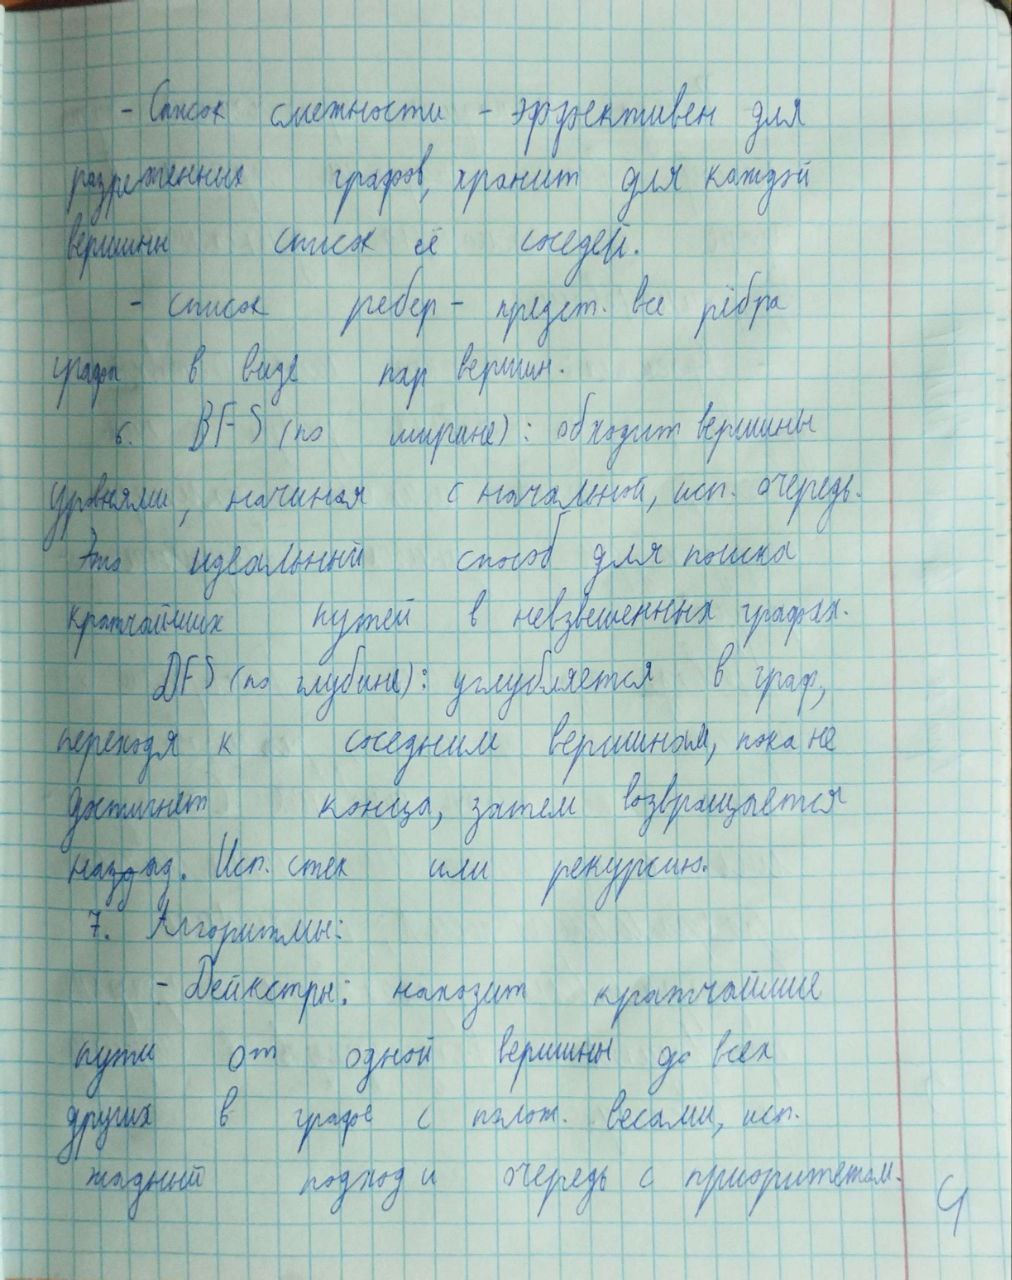 - Список смежности - эффективен для
разреженных графов, хранит для каждой
вершины список её соседей.
- список ребер - предст. все рёбра
графа в виде пар вершин.
6. BFS (по ширине): обходит вершины
уровнями, начиная с начальной, исп. очередь.
Это идеальный способ для поиска
кратчайших путей в невзвешенных графах.
DFS (по глубине): углубляется в граф,
переходя к соседним вершинам, пока не
достигнет конца, затем возвращается
назад. Исп. стек или рекурсию.
7. Алгоритмы:
- Дейкстры: находит кратчайшие
пути от одной вершины до всех
других в графе с полож. весами, исп.
жадный подход и очередь с приоритетом.
4